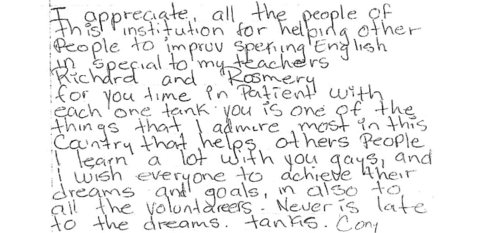 I appreciate, all the people of
this institution for helping other
People to improv spening English
in special to my teachers
Richard and Rosmery
for you time in Patient with
each one tank you is one of the
things that I admire most in this
Country that helps others People
I learn a lot with you gays, and
I wish everyone to achieve their
dreams and goals, in also to
all the voluntareers. Never is late
to the dreams. tanks. Cony